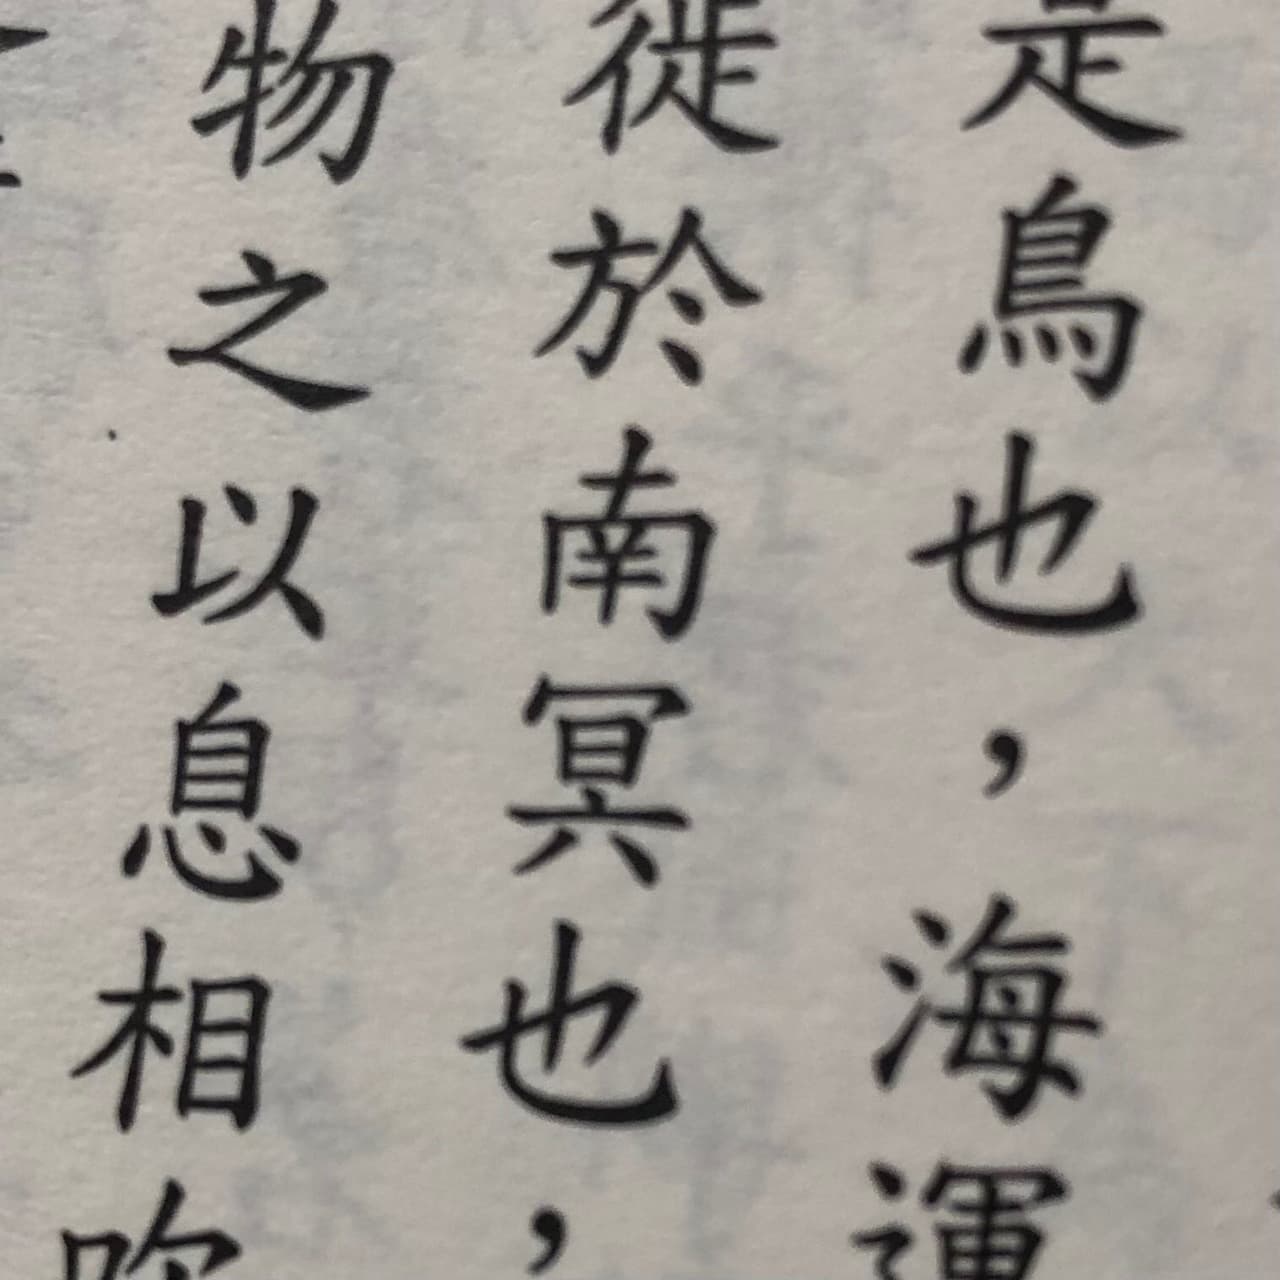 是鳥也，海運
徙於南冥也，
物之以息相吹